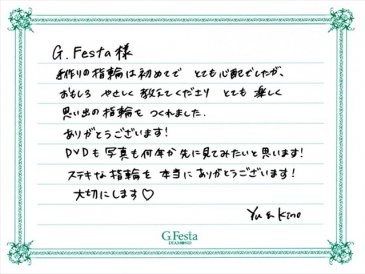 G.Festa様
手作りの指輪は初めてで とても心配でしたが、
おもしろ やさしく 教えてくださり とても 楽しく
思い出の指輪を つくれました.
ありがとうございます!
DVDも写真も何年か先に見てみたいと思います!
ステキな指輪を 本当に ありがとうございます!
大切にします♡
Yu & Kino
G.Festa
DIAMOND